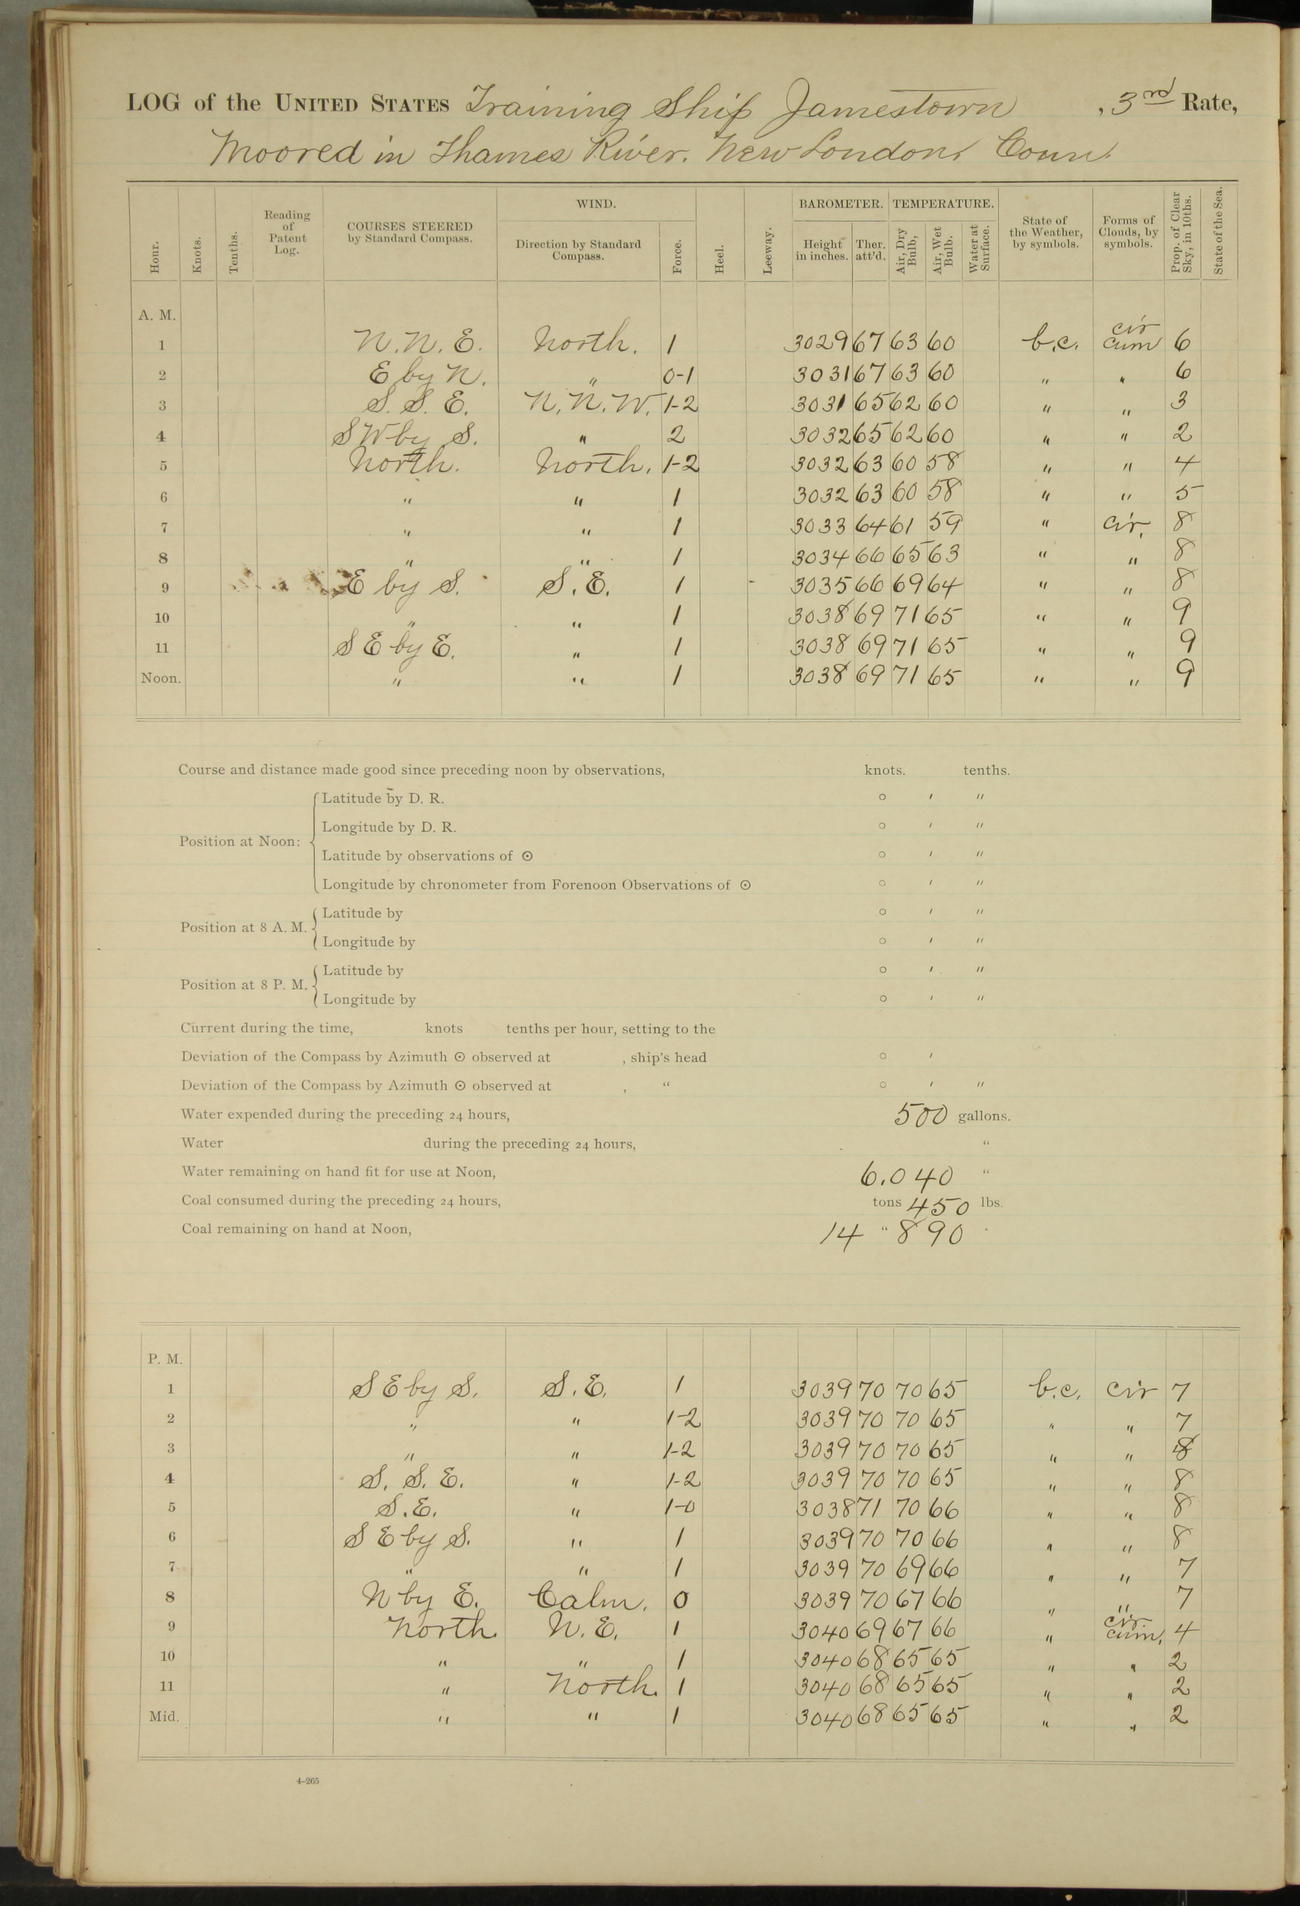 LOG of the UNITED STATES Training Ship Jamestown , 3rd Rate,
Moored in Thames River. New London, Conn.
Hour. Knots. Tenths. Reading of Patent Log. COURSES STEERED by Standard Compass. WIND. Direction by Standard Compass. Force. Heel. Leeway. BAROMETER. Height in inches. Ther. att'd. TEMPERATURE. Air, Dry Bulb, Air, Wet Bulb. Water at Surface. State of the Weather, by symbols. Forms of Clouds, by symbols. Prop. of Clear Sky, in 10ths. State of the Sea.
A. M.
1 N.N.E. North. 1 3029 67 63 60 b.c. cir cum 6
2 E by N. " 0-1 3031 67 63 60 " " 6
3 S.S.E. N.N.W. 1-2 3031 65 62 60 " " 3
4 SW by S. " 2 3032 65 62 60 " " 2
5 North. North. 1-2 3032 63 60 58 " " 4
6 " " 1 3032 63 60 58 " " 5
7 " " 1 3033 64 61 59 " cir. 8
8 " " 1 3034 66 65 63 " " 8
9 E by S. S.E. 1 3035 66 69 64 " " 8
10 " " 1 3038 69 71 65 " " 9
11 SE by E. " 1 3038 69 71 65 " " 9
Noon. " " 1 3038 69 71 65 " " 9
Course and distance made good since preceding noon by observations, knots. tenths.
Position at Noon:
Latitude by D. R. ° ′ ″
Longitude by D. R. ° ′ ″
Latitude by observations of ☉ ° ′ ″
Longitude by chronometer from Forenoon Observations of ☉ ° ′ ″
Position at 8 A. M.
Latitude by ° ′ ″
Longitude by ° ′ ″
Position at 8 P. M.
Latitude by ° ′ ″
Longitude by ° ′ ″
Current during the time, knots tenths per hour, setting to the
Deviation of the Compass by Azimuth ☉ observed at , ship's head ° ′
Deviation of the Compass by Azimuth ☉ observed at , " ° ′ ″
Water expended during the preceding 24 hours, 500 gallons.
Water during the preceding 24 hours, "
Water remaining on hand fit for use at Noon, 6.040 "
Coal consumed during the preceding 24 hours, tons 450 lbs.
Coal remaining on hand at Noon, 14 " 890 "
P. M.
1 SE by S. S.E. 1 3039 70 70 65 b.c. cir 7
2 " " 1-2 3039 70 70 65 " " 7
3 " " 1-2 3039 70 70 65 " " 8
4 S.S.E. " 1-2 3039 70 70 65 " " 8
5 S.E. " 1-0 3038 71 70 66 " " 8
6 SE by S. " 1 3039 70 70 66 " " 8
7 " " 1 3039 70 69 66 " " 7
8 N by E. Calm. 0 3039 70 67 66 " " 7
9 North. N.E. 1 3040 69 67 66 " cir cum. 4
10 " " 1 3040 68 65 65 " " 2
11 " North. 1 3040 68 65 65 " " 2
Mid. " " 1 3040 68 65 65 " " 2
4-265